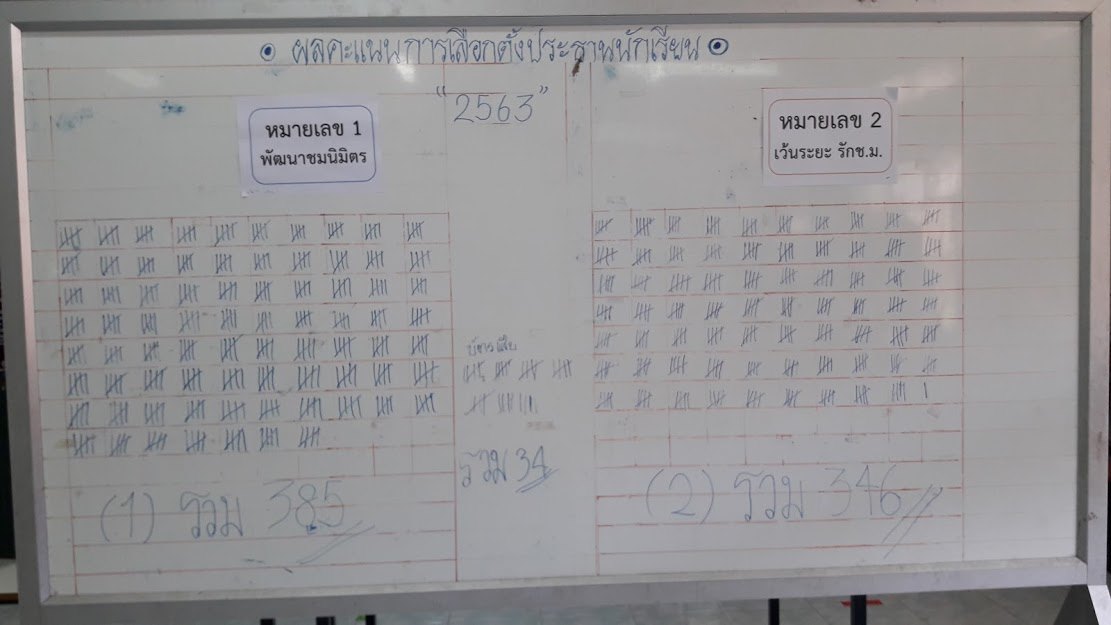 ผลคะแนนการเลือกตั้งประธานนักเรียน
"2563"
หมายเลข 1
พัฒนาชมนิมิตร
หมายเลข 2
เว้นระยะ รักช.ม.
บัตรเสีย
รวม 34
(1) รวม 385
(2) รวม 346